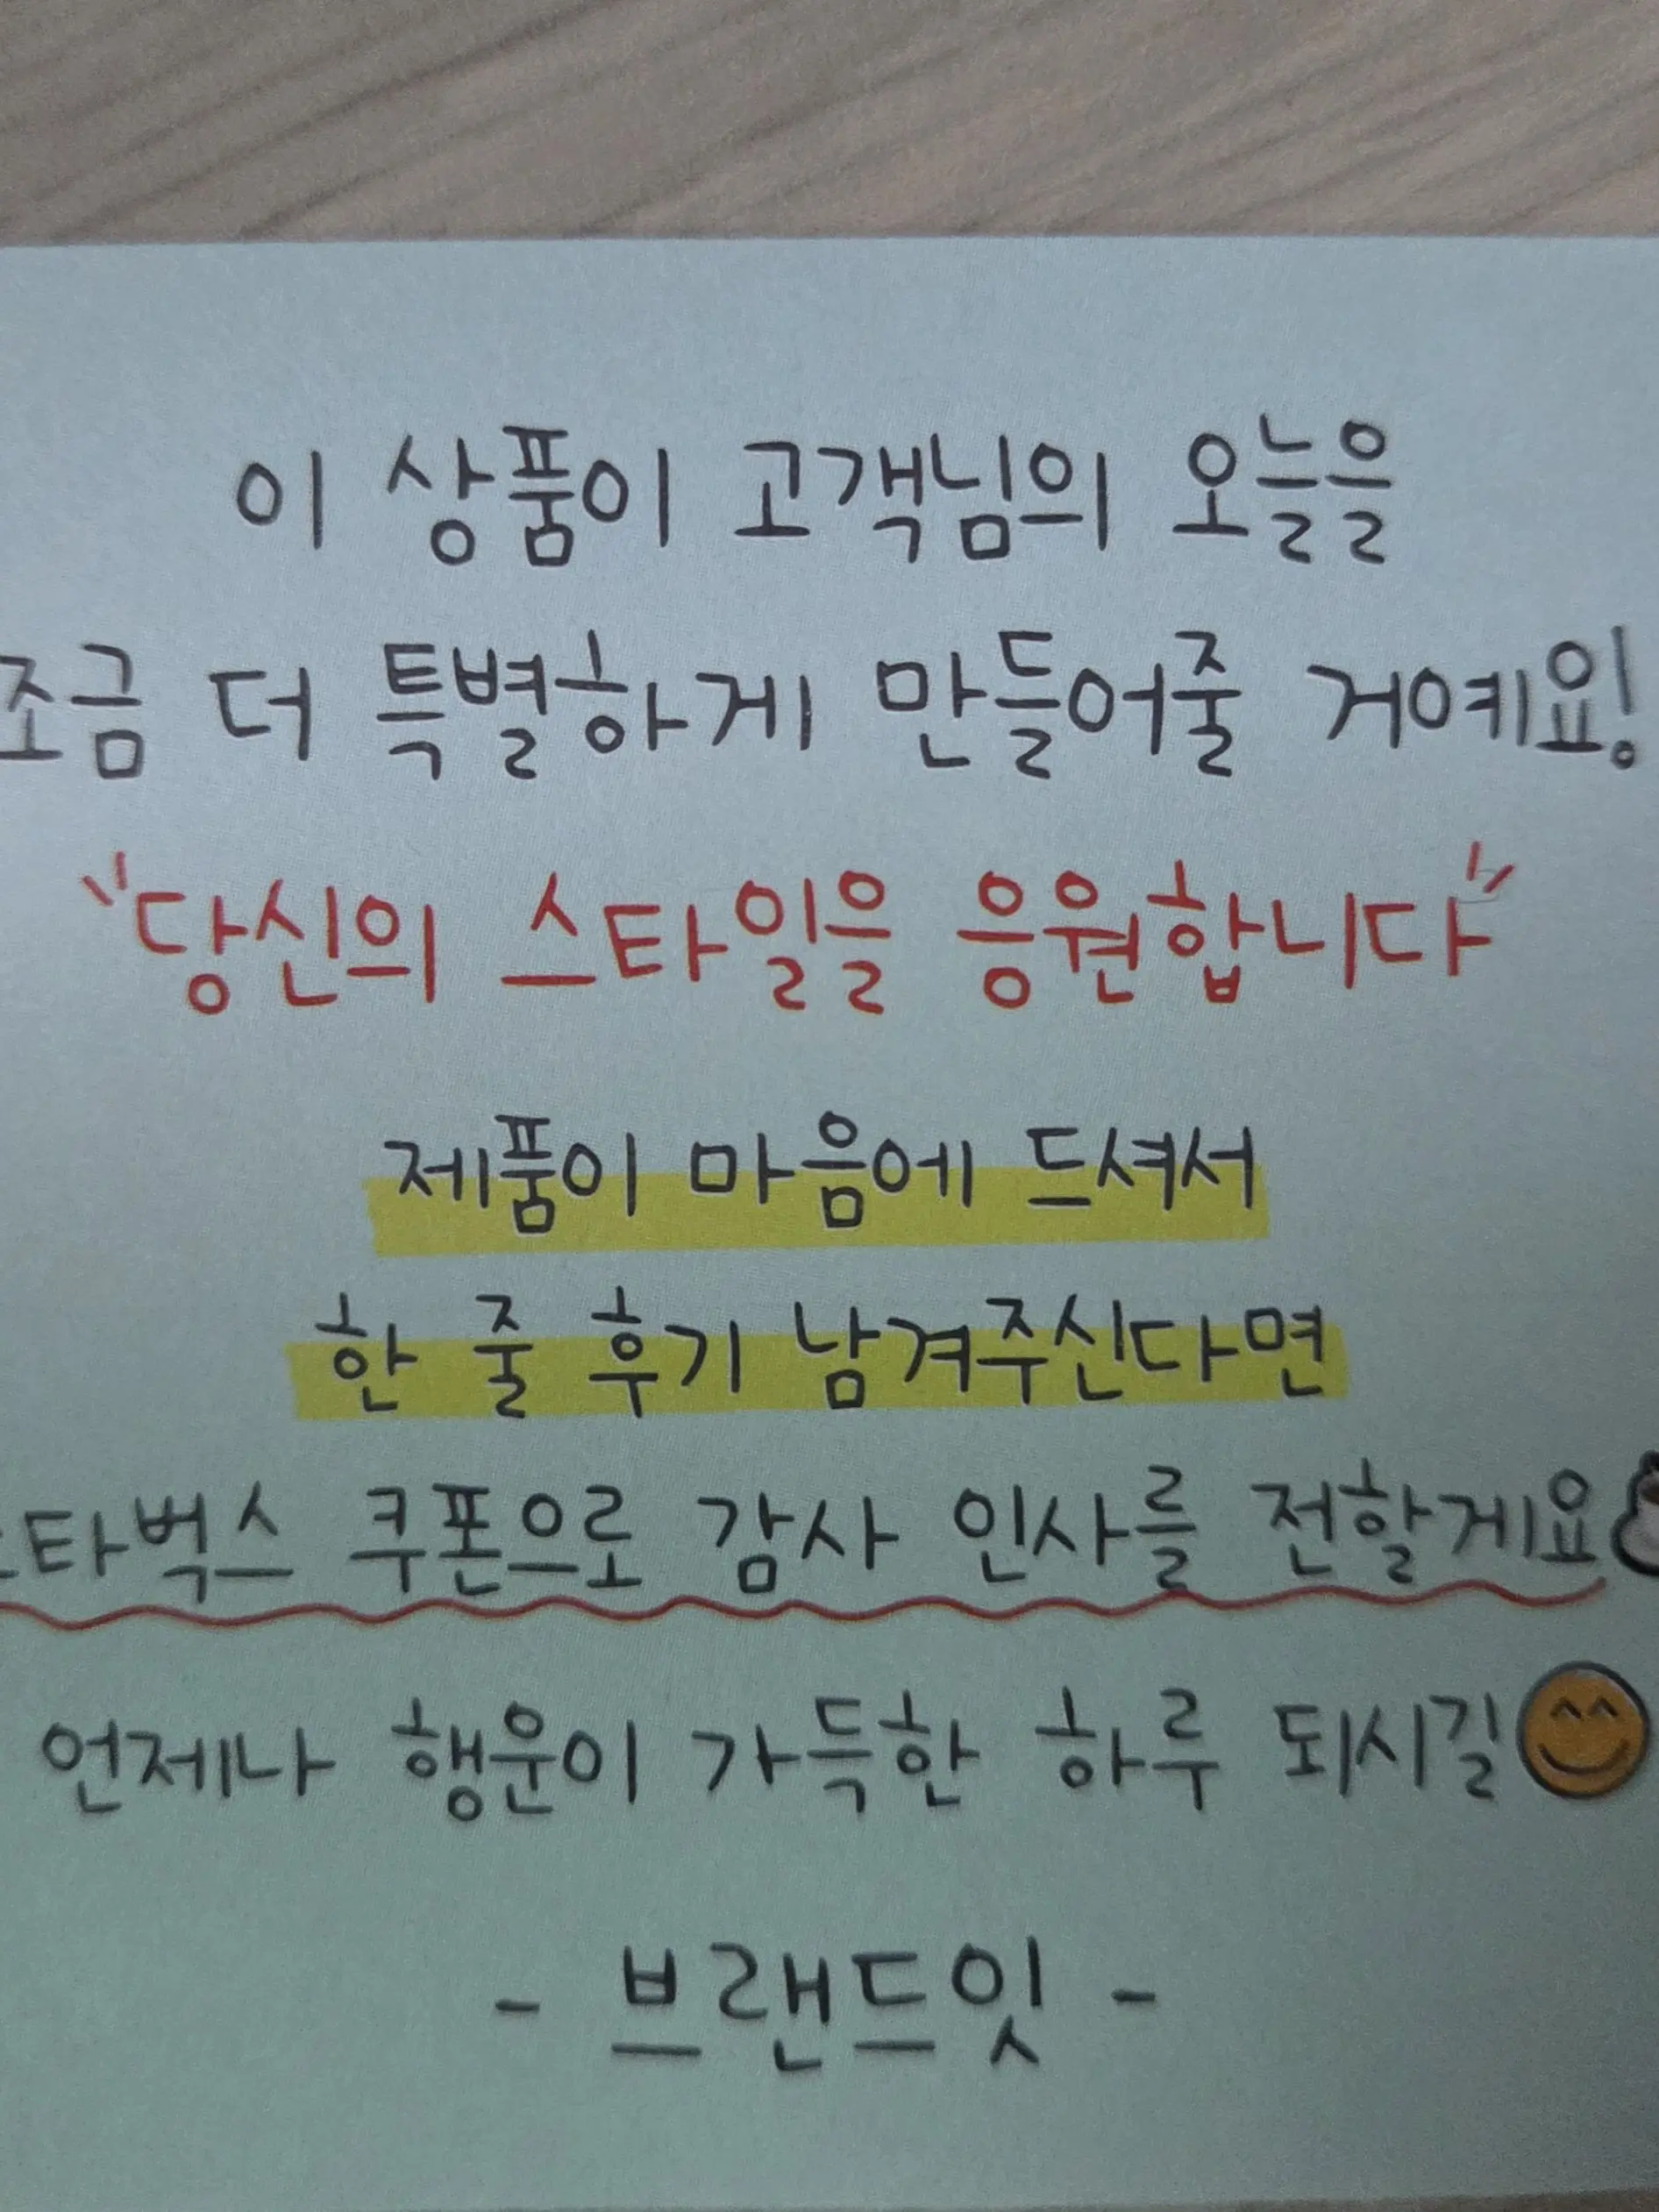 이 상품이 고객님의 오늘을
조금 더 특별하게 만들어줄 거예요!
"당신의 스타일을 응원합니다"
제품이 마음에 드셔서
한 줄 후기 남겨주신다면
스타벅스 쿠폰으로 감사 인사를 전할게요
언제나 행운이 가득한 하루 되시길
- 브랜드잇 -